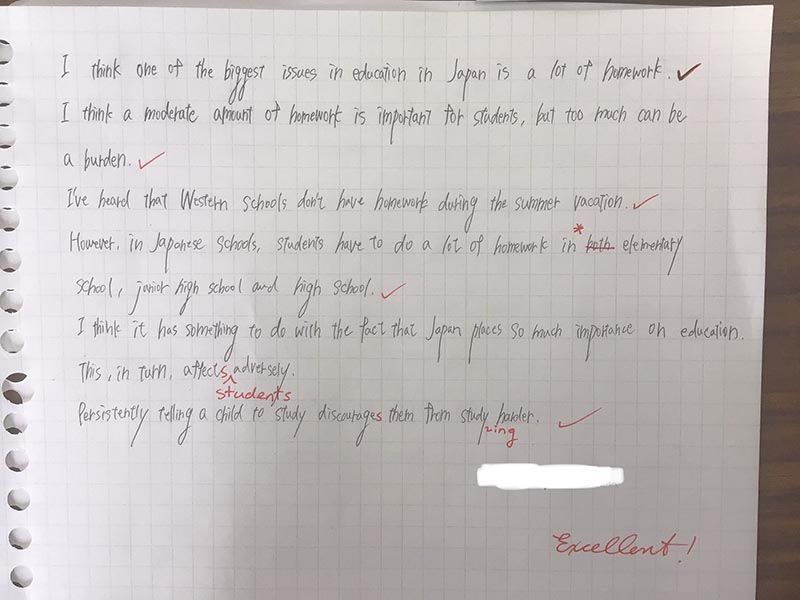 I think one of the biggest issues in education in Japan is a lot of homework.
I think a moderate amount of homework is important for students, but too much can be
a burden.
I've heard that Western schools don't have homework during the summer vacation.
*
However, in Japanese schools, students have to do a lot of homework in both elementary
school, junior high school and high school.
I think it has something to do with the fact that Japan places so much importance on education.
This, in turn, affects adversely.
students
Persistently telling a child to study discourages them from study harder.
ing
Excellent!